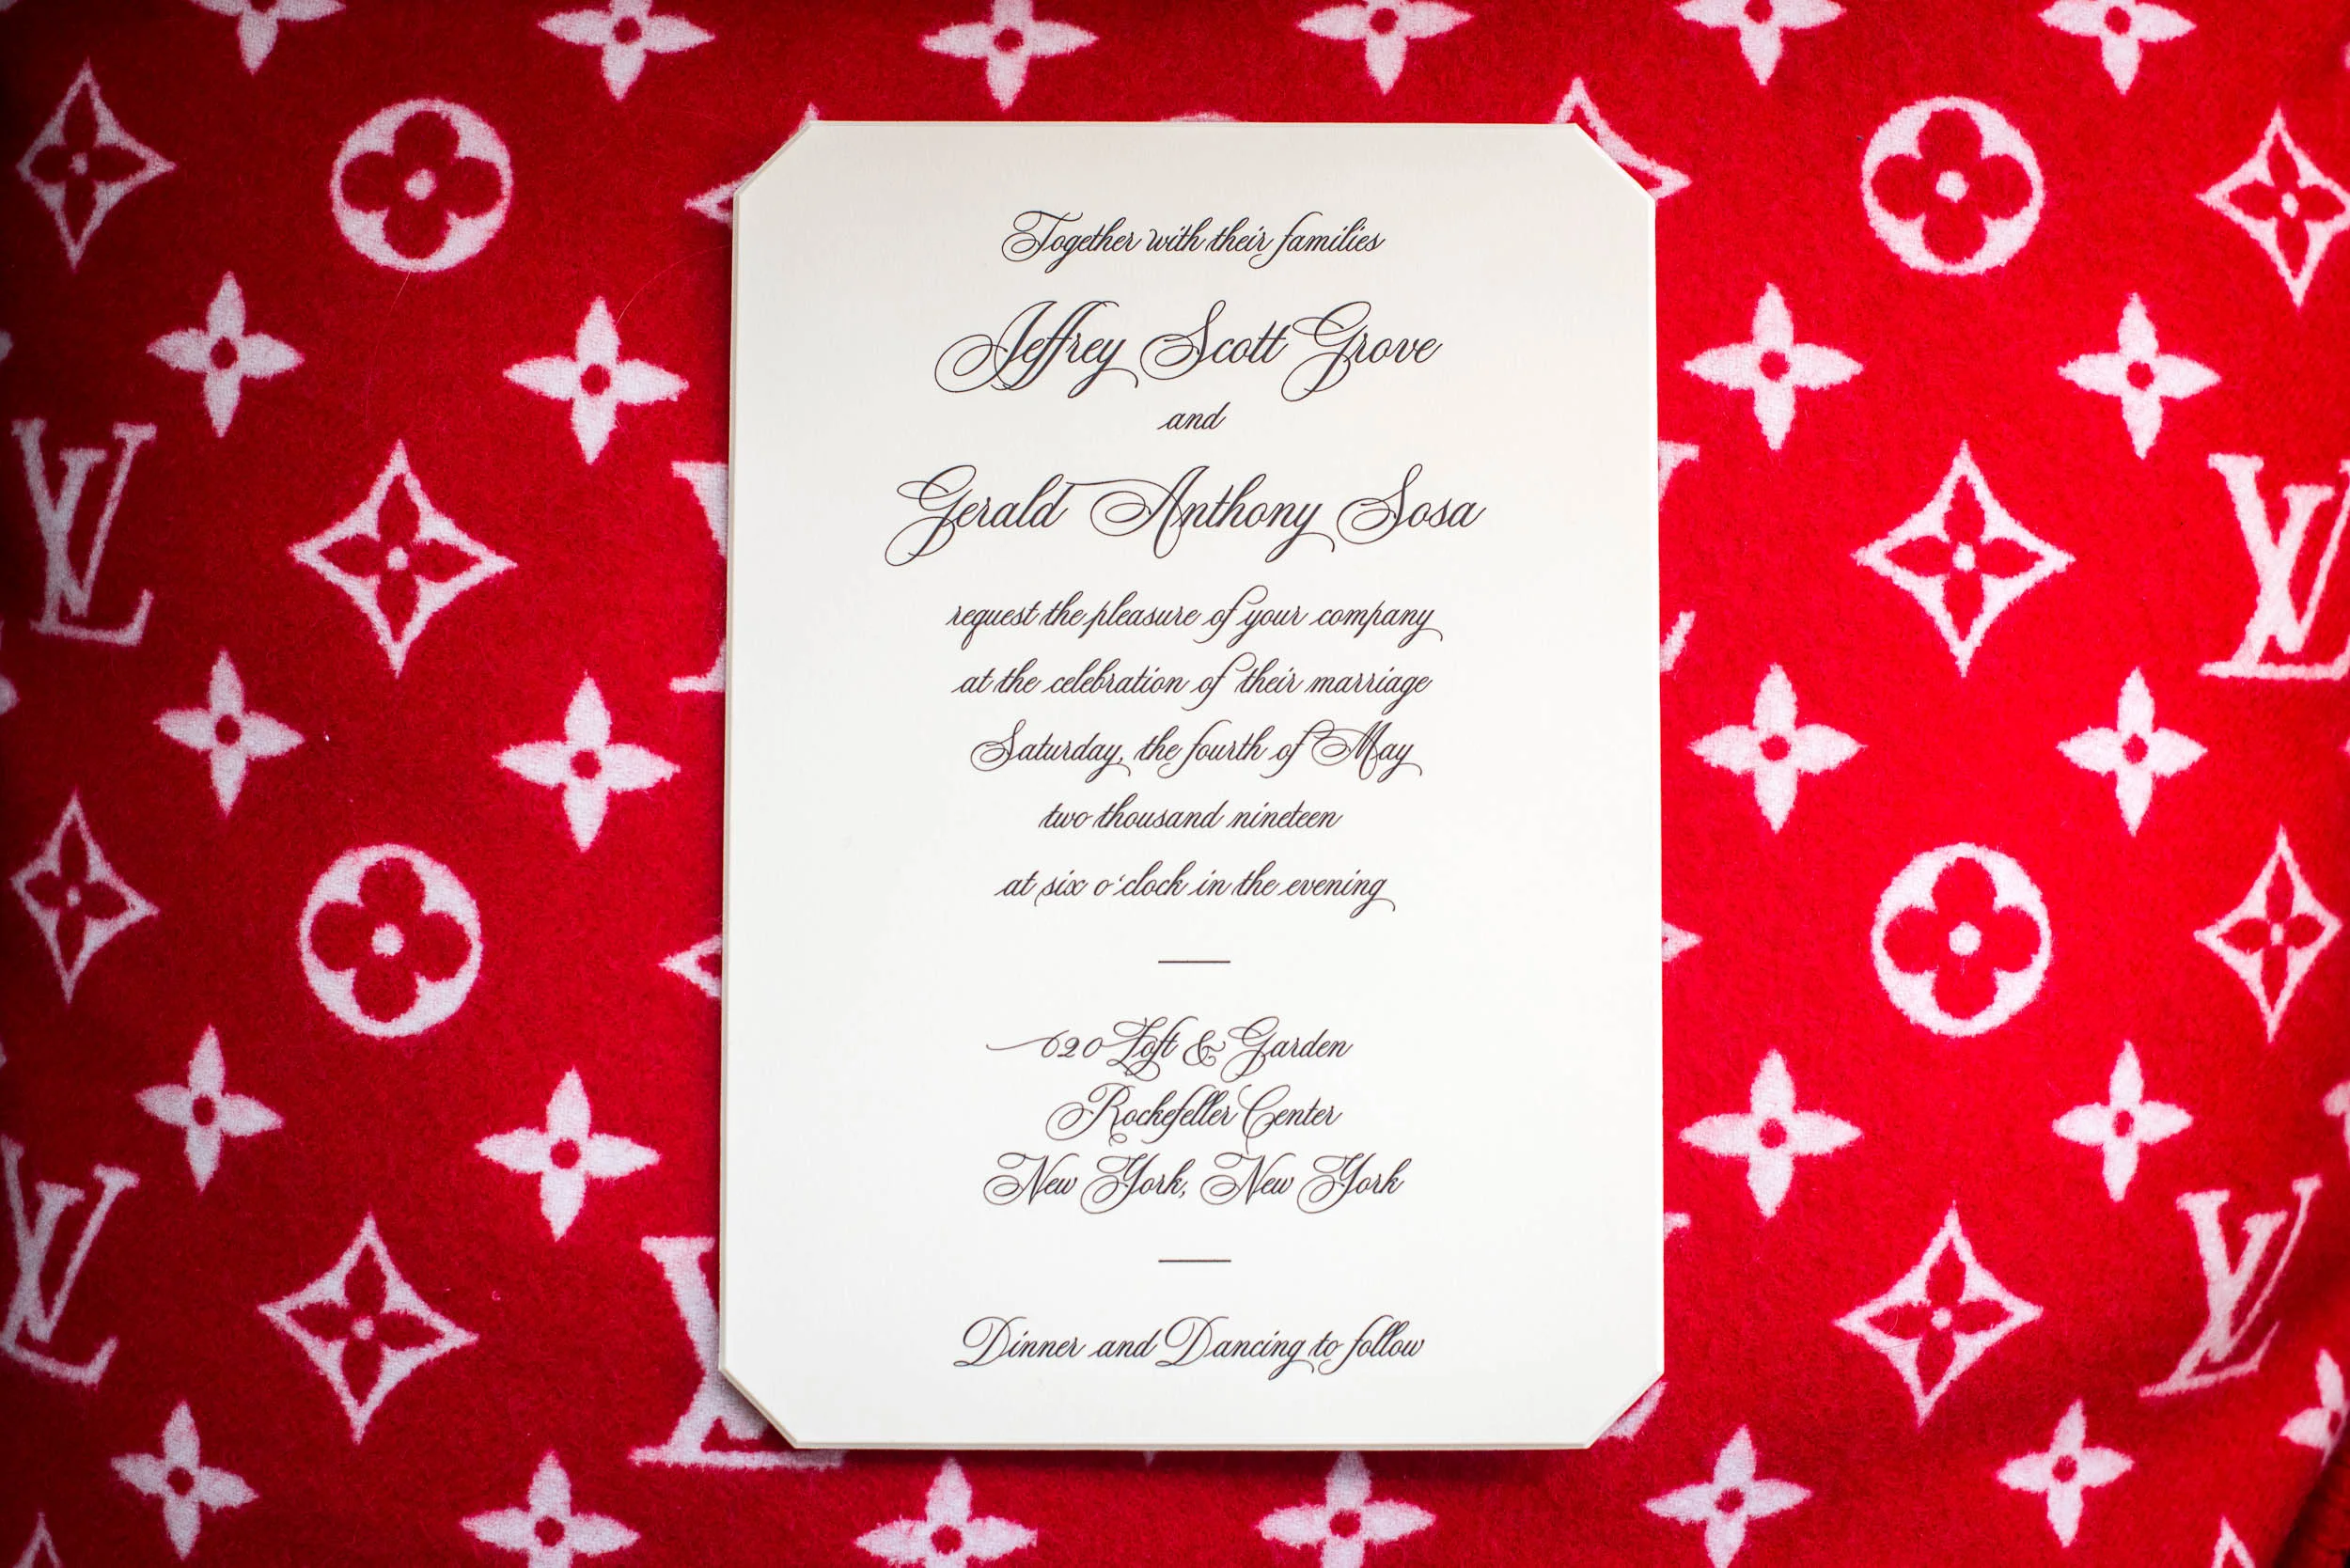 Together with their families
Jeffrey Scott Grove
and
Gerald Anthony Sosa
request the pleasure of your company
at the celebration of their marriage
Saturday, the fourth of May
two thousand nineteen
at six o'clock in the evening
620 Loft & Garden
Rockefeller Center
New York, New York
Dinner and Dancing to follow
LV
LV
LV
LV